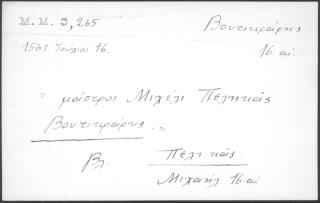 Μ.Μ. 3,265
Βουτιφράρης
16 αι.
1561. Ιούλιος 16.
" μάστρος Μιχέλι Πεληκάς
Βουτιφράρης . "
βλ. Πεληκάς.
Μιχαήλ 16 αι.